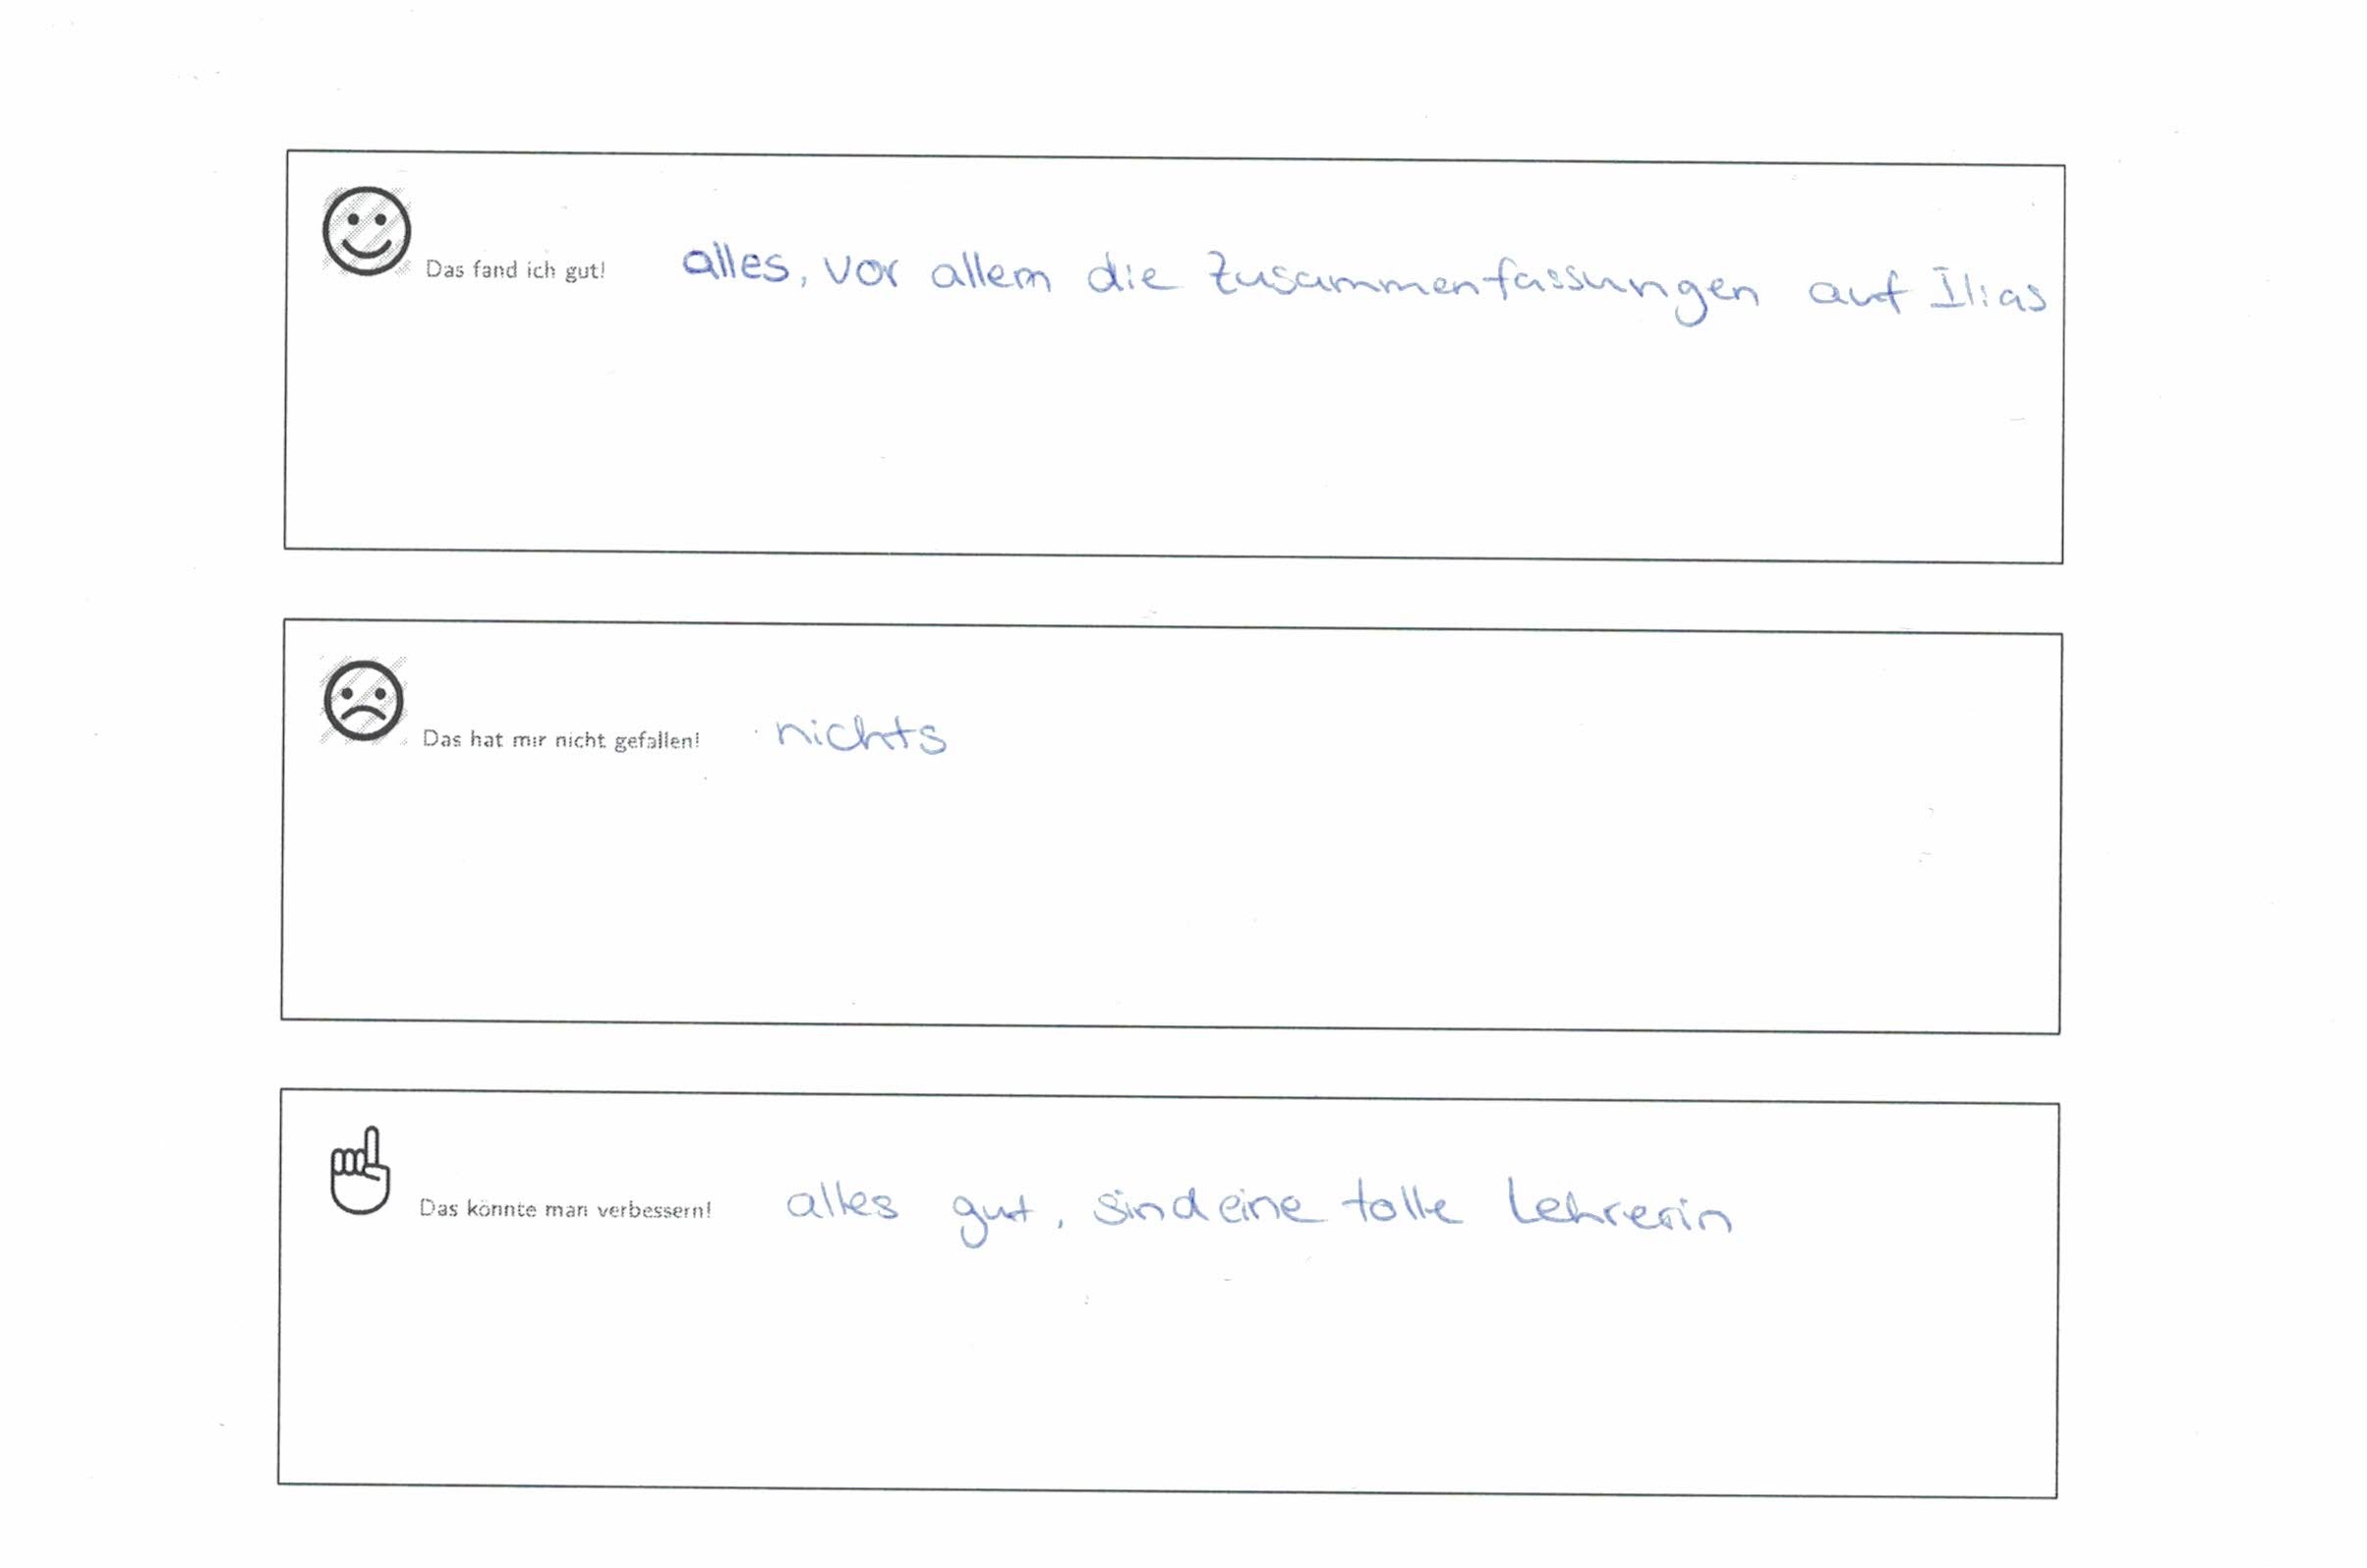 Das fand ich gut! alles, vor allem die Zusammenfassungen auf Ilias
Das hat mir nicht gefallen! nichts
Das könnte man verbessern! alles gut, sind eine tolle Lehrerin